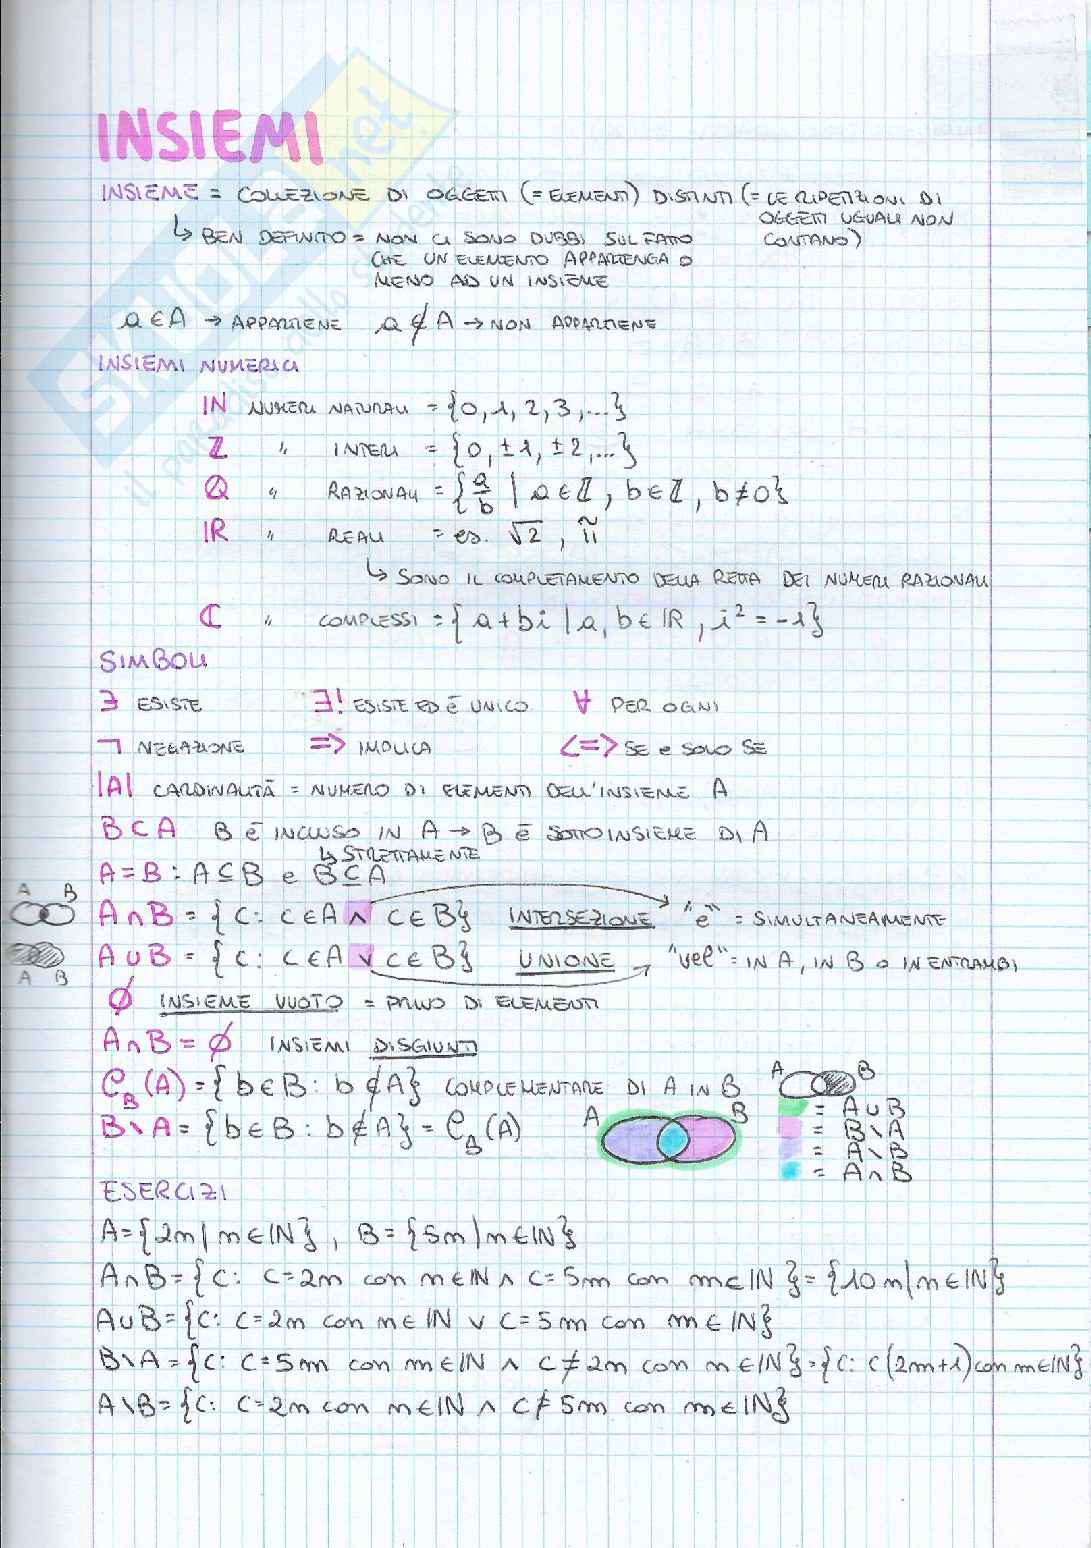 INSIEMI
INSIEME = COLLEZIONE DI OGGETTI (= ELEMENTI) DISTINTI (= LE RIPETIZIONI DI
OGGETTI UGUALI NON
CONTANO)
↳ BEN DEFINITO = NON CI SONO DUBBI SUL FATTO
CHE UN ELEMENTO APPARTENGA O
MENO AD UN INSIEME
a ∈ A → APPARTIENE a ∉ A → NON APPARTIENE
INSIEMI NUMERICI
ℕ NUMERI NATURALI = {0, 1, 2, 3, ...}
ℤ " INTERI = {0, ±1, ±2, ...}
ℚ " RAZIONALI = {a/b | a ∈ ℤ, b ∈ ℤ, b ≠ 0}
ℝ " REALI = es. √2, π
↳ SONO IL COMPLETAMENTO DELLA RETTA DEI NUMERI RAZIONALI
ℂ " COMPLESSI = {a+bi | a, b ∈ ℝ, i² = -1}
SIMBOLI
∃ ESISTE ∃! ESISTE ED È UNICO ∀ PER OGNI
¬ NEGAZIONE => IMPLICA <=> SE e SOLO SE
|A| CARDINALITÀ = NUMERO DI ELEMENTI DELL'INSIEME A
B ⊂ A B È INCLUSO IN A → B È SOTTOINSIEME DI A
↳ STRETTAMENTE
A = B : A ⊆ B e B ⊆ A
A B
A ∩ B = {c: c ∈ A ∧ c ∈ B} INTERSEZIONE "e" = SIMULTANEAMENTE
A ∪ B = {c: c ∈ A ∨ c ∈ B} UNIONE "vel" = IN A, IN B O IN ENTRAMBI
A B
∅ INSIEME VUOTO = PRIVO DI ELEMENTI
A ∩ B = ∅ INSIEMI DISGIUNTI
C_B(A) = {b ∈ B: b ∉ A} COMPLEMENTARE DI A IN B A B
B∖A = {b ∈ B: b ∉ A} = C_B(A) A B
= A ∪ B
= B∖A
= A∖B
= A ∩ B
ESERCIZI
A = {2n | n ∈ ℕ}, B = {5m | m ∈ ℕ}
A ∩ B = {c: c = 2n con n ∈ ℕ ∧ c = 5m con m ∈ ℕ} = {10n | n ∈ ℕ}
A ∪ B = {c: c = 2n con n ∈ ℕ ∨ c = 5m con m ∈ ℕ}
B∖A = {c: c = 5m con m ∈ ℕ ∧ c ≠ 2n con n ∈ ℕ} = {c: c (2m+1) con m ∈ ℕ}
A∖B = {c: c = 2n con n ∈ ℕ ∧ c ≠ 5m con m ∈ ℕ}
SKUOLA.net
il paradiso dello studente